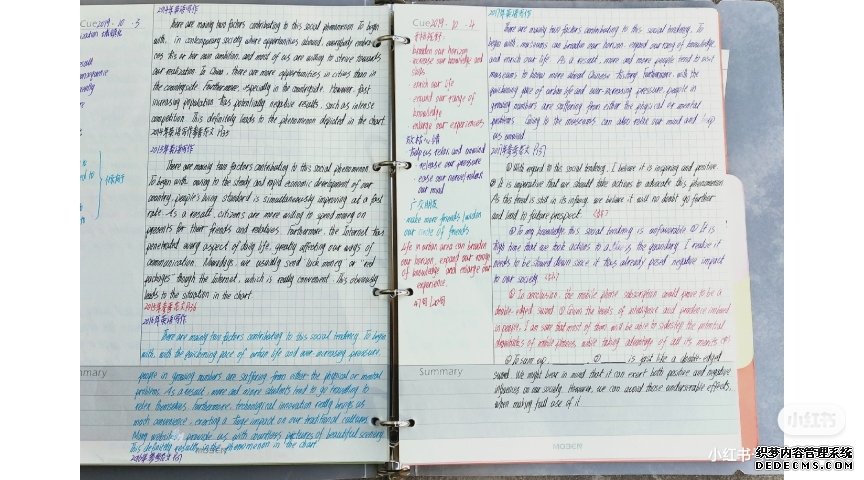 Cue 2019 · 10 · 5
2014年英语写作
there are mainly two factors contributing to this social phenomenon. To begin
with, in contemporary society where opportunities abound, everybody
his or her own ambition, and most of us are willing to strive towards
our In China, there are more opportunities in cities than in
the countryside. Furthermore, especially in the countryside. However, fast
increasing population has potentially negative results, such as intense
competition. This definitely leads to the phenomenon depicted in the chart.
2015年英语写作
there are mainly two factors contributing to this social phenomenon.
To begin with, owing to the steady and rapid economic development of our
country, people's living standard is simultaneously improving at a fast
rate. As a result, citizens are more willing to spend money on
presents for their friends and relatives. Furthermore, the Internet has
penetrated every aspect of daily life, greatly affecting our ways of
communication. Nowadays, we usually send luck money or "red
packages" though the Internet, which is really convenient. This obviously
leads to the situation in the chart.
2016年英语写作
there are mainly two factors contributing to this social tendency. To begin
with, with the quickening pace of urban life and ever-increasing pressure,
people in growing numbers are suffering from either the physical or mental
problems. As a result, more and more students tend to go travelling to
relax themselves. Furthermore, technological innovation really brings us
much convenience, exerting a huge impact on our traditional cultures.
Many websites provide us with countless pictures of beautiful scenery.
This definitely results in the phenomenon in the chart.
mmary
Cue 2019 · 10 · 4
broaden our horizon
increase our knowledge and
skills
enrich our life
expand our range of
knowledge
enlarge our experiences
放松心情
help us relax and unwind
· release our pressure
· ease our nerves/relax
our mind
广交朋友
make more friends/widen
our circle of friends
Life in urban area can broaden
our horizon, expand our range
of knowledge and enlarge our
experience.
2017年英语写作
there are mainly two factors contributing to this social tendency. To
begin with, museums can broaden our horizon, expand our range of knowledge
and enrich our life. As a result, more and more people tend to visit
museums to know more about Chinese history. Furthermore, with the
quickening pace of urban life and ever-increasing pressure, people in
growing numbers are suffering from either the physical or mental
problems. Going to the museums can also relax our mind and
unwind.
① With regard to this social tendency, I believe it is inspiring and positive.
② It is imperative that we should take actions to advocate this phenomenon.
As this trend is still in its infancy, we believe it will no doubt go further
and lead to future prospect.
① To my knowledge, this social tendency is unfavorable. ② It is
high time that we took actions to I realize it
needs to be slowed down since it has already posed negative impact
to our society.
① In conclusion, the mobile phone subscription could prove to be a
double-edged sword. ② Given the levels of intelligence and prudence involved
in people, I am sure that most of them will be able to sidestep the potential
of mobile phones, while taking advantage of all its merits.
① To sum up, ______ ② ______ is just like a double-edged
sword. We might bear in mind that it can exert both positive and negative
influences on our society. However, we can avoid those undesirable effects,
when making full use of it.
Summary
MOBEN
小红书
小红书
织梦内容管理系统
DEDECMS.COM